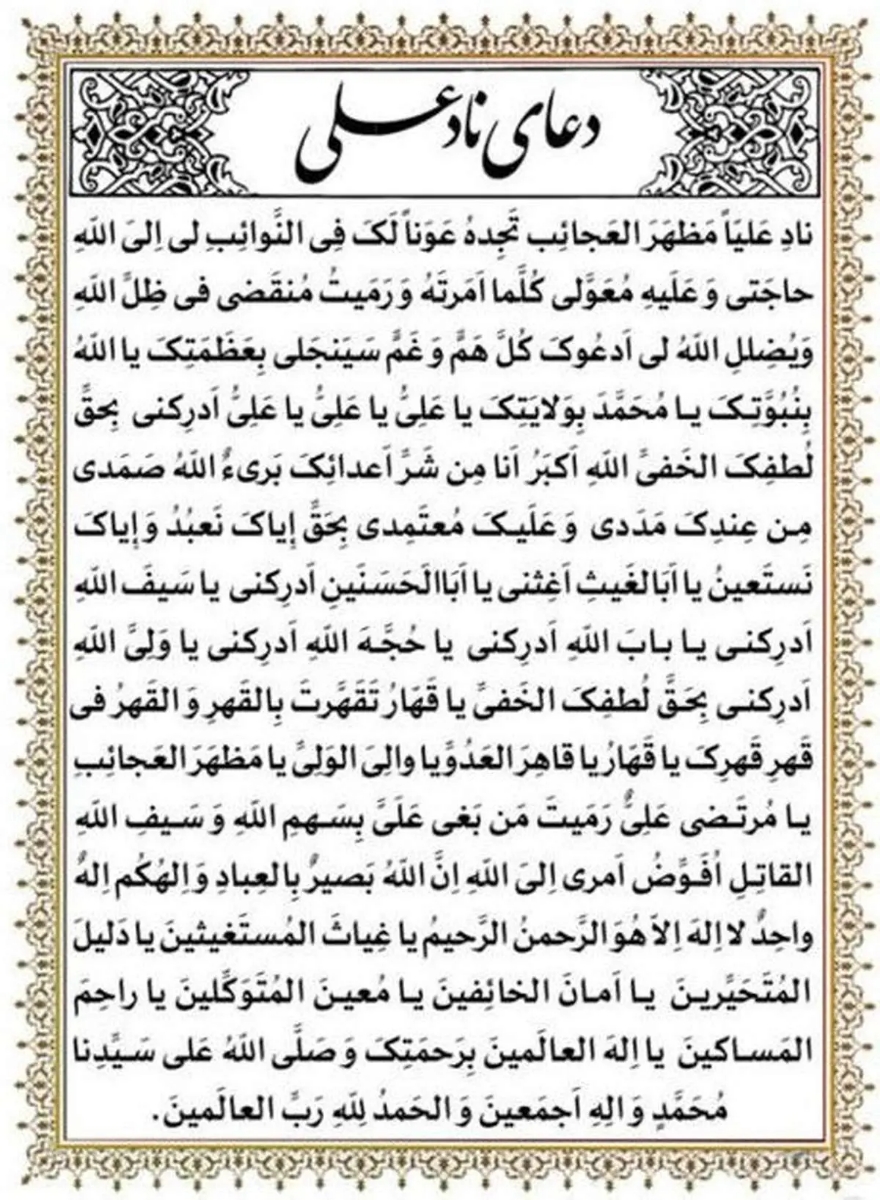 دعای ناد علی
نادِ عَلیَاً مَظهَرَ العَجائِب تَجِدهُ عَوَناً لَکَ فِی النَّوائِبِ لی اِلیَ اللهِ
حاجَتی وَ عَلَیهِ مُعَوَّلی کُلَّما اَمَرتَهُ وَ رَمَیتُ مُنقَضی فی ظِلَّ اللهِ
وَیُضِللِ اللهُ لی اَدعُوکَ کُلَّ هَمًّ وَ غَمًّ سَیَنجَلی بِعَظَمَتِکَ یا اللهُ
بِنُبُوَّتِکَ یا مُحَمَّدَ بِوَلایَتِکَ یا عَلِیُّ یا عَلِیُّ یا عَلِیُّ اَدرِکنی بِحقَّ
لُطفِکَ الخَفیَّ اللهِ اَکبَرُ اَنا مِن شَرَّ اَعدائِکَ بَریءٌ اللهُ صَمَدی
مِن عِندِکَ مَدَدی وَ عَلَیکَ مُعتَمِدی بِحَقَّ إیاکَ نَعبُدُ وَ إیاکَ
نَستَعینُ یا اَبَالغَیثِ اَغِثنی یا اَبَاالَحَسَنَینِ اَدرِکنی یا سَیفَ اللهِ
اَدرِکنی یا بابَ اللهِ اَدرِکنی یا حُجَّهَ اللهِ اَدرِکنی یا وَلِیَّ اللهِ
اَدرِکنی بِحَقَّ لُطفِکَ الخَفیَّ یا قَهّارُ تَقَهَّرتَ بِالقَهرِ وَ القَهرُ فی
قَهرِ قَهرِکَ یا قَهّارُ یا قاهِرَ العَدُوَّیا والِیَ الوَلِیَّ یا مَظهَرَ العَجائِبِ
یا مُرتَضی عَلِیٌّ رَمَیتَ مَن بَغی عَلَیَّ بِسَهمِ اللهِ وَ سَیفِ اللهِ
القاتِلِ اُفَوَّضُ اَمری اِلیَ اللهِ اِنَّ اللهُ بَصیرٌ بِالعِبادِ وَ اِلهُکُم اِلهٌ
واحِدٌ لا اِلهَ اِلاَ هُوَ الرَّحمنُ الرَّحیمُ یا غِیاثَ المُستَغیثینَ یا دَلیلَ
المُتَحَیَّرینَ یا اَمانَ الخائِفینَ یا مُعینَ المُتَوَکَّلینَ یا راحِمَ
المَساکینَ یا اِلهَ العالَمینَ بِرَحمَتِکَ وَ صَلَّی اللهُ عَلی سَیَّدِنا
مُحَمَّدٍ وَ الِهِ اَجمَعینَ وَ الحَمدُ لِلّهِ رَبَّ العالَمینَ.